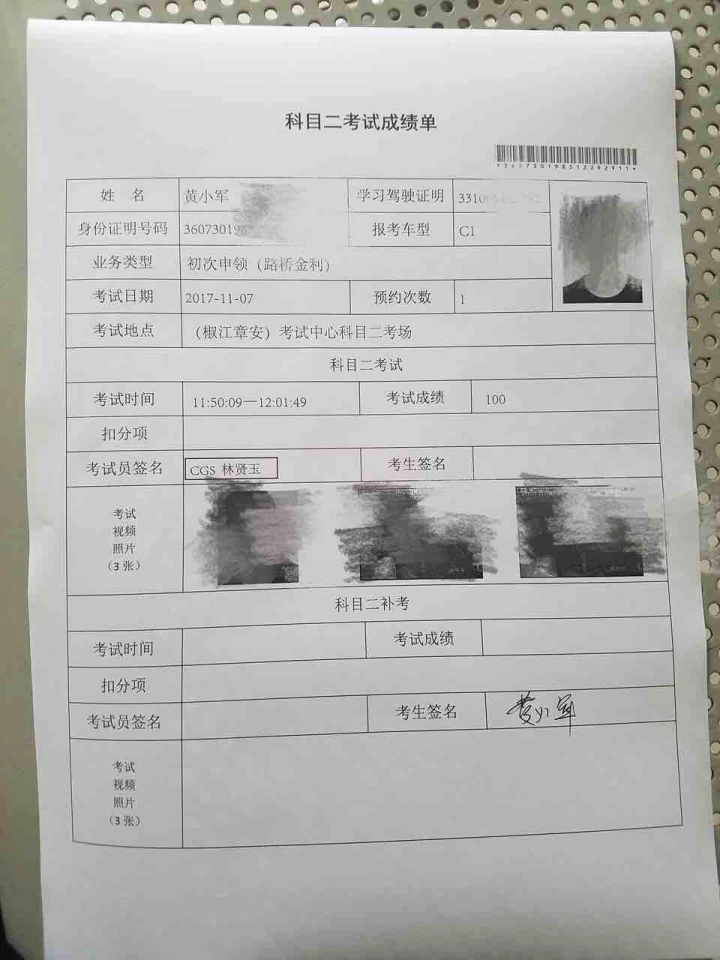 科目二考试成绩单
姓 名 黄小军 学习驾驶证明 3310
身份证明号码 36073019 报考车型 C1
业务类型 初次申领（路桥金利）
考试日期 2017-11-07 预约次数 1
考试地点 （椒江章安）考试中心科目二考场
科目二考试
考试时间 11:50:09—12:01:49 考试成绩 100
扣分项
考试员签名 CGS 林贤玉 考生签名
考试
视频
照片
（3 张）
科目二补考
考试时间 考试成绩
扣分项
考试员签名 考生签名 黄小军
考试
视频
照片
（3 张）